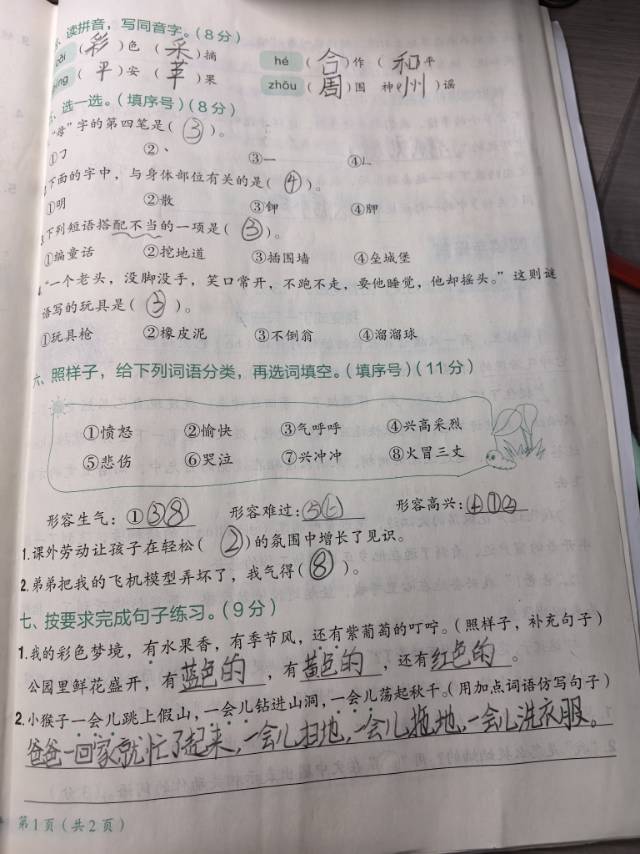 读拼音，写同音字。(8分)
(彩)色 (采)摘 hé (合)作 (和)平
(平)安 (苹)果 zhōu (周)围 神(州)谣
选一选。(填序号)(8分)
“母”字的第四笔是(③)。
①㇆ ②、 ③一 ④∟
下面的字中，与身体部位有关的是(④)。
①明 ②散 ③钾 ④胛
下列短语搭配不当的一项是(③)。
①编童话 ②挖地道 ③插围墙 ④垒城堡
“一个老头，没脚没手，笑口常开，不跑不走，要他睡觉，他却摇头。”这则谜
语写的玩具是(③)。
①玩具枪 ②橡皮泥 ③不倒翁 ④溜溜球
六、照样子，给下列词语分类，再选词填空。(填序号)(11分)
①愤怒 ②愉快 ③气呼呼 ④兴高采烈
⑤悲伤 ⑥哭泣 ⑦兴冲冲 ⑧火冒三丈
形容生气：①③⑧ 形容难过:⑤⑥ 形容高兴:④⑦②
1.课外劳动让孩子在轻松(②)的氛围中增长了见识。
2.弟弟把我的飞机模型弄坏了，我气得(⑧)。
七、按要求完成句子练习。(9分)
1.我的彩色梦境，有水果香，有季节风，还有紫葡萄的叮咛。(照样子，补充句子)
公园里鲜花盛开，有蓝色的，有黄色的，还有红色的。
2.小猴子一会儿跳上假山，一会儿钻进山洞，一会儿荡起秋千。(用加点词语仿写句子)
爸爸一回家就忙了起来，一会儿扫地，一会儿拖地，一会儿洗衣服。
第1页(共2页)